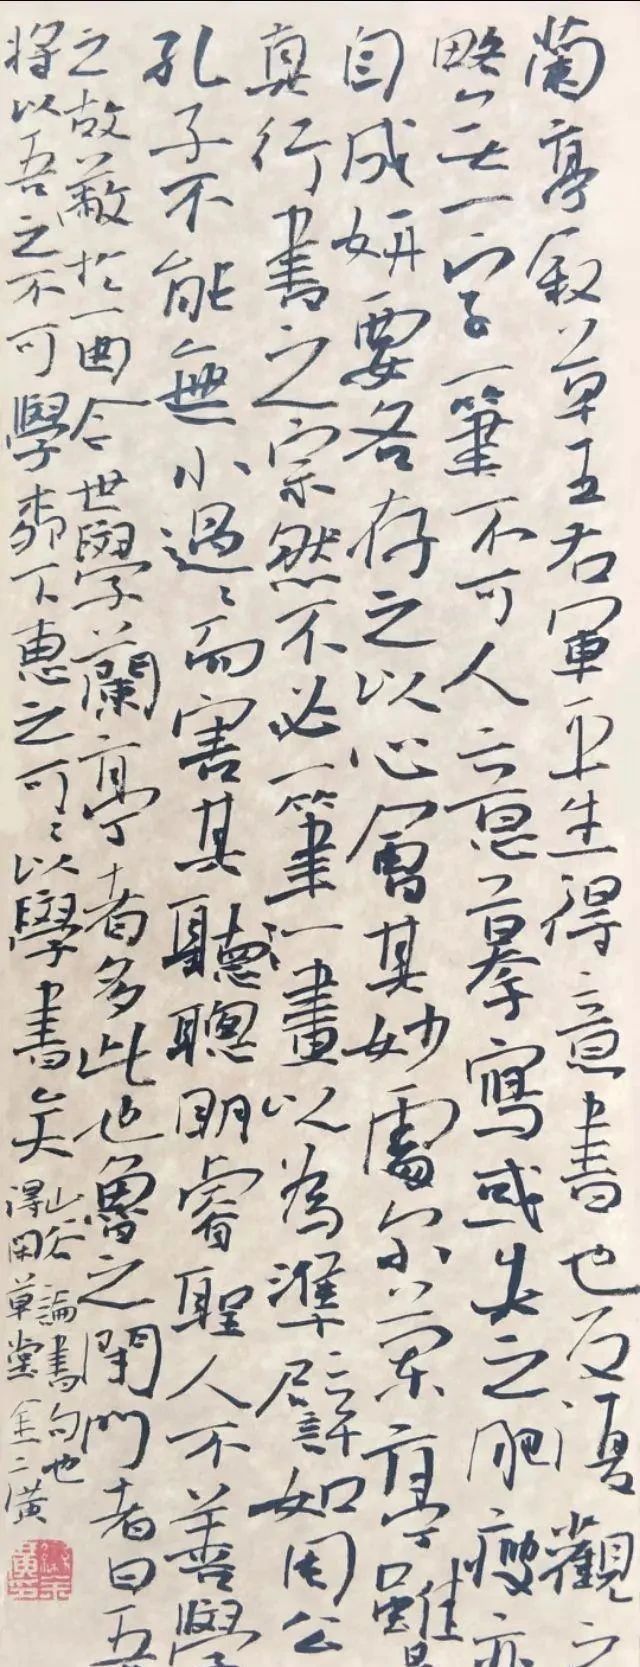 蘭亭叙草王右軍平生得意書也反復觀之
略無一字一筆不可人意摹寫或失之肥瘦亦
自成妍要各存之以心會其妙處爾蘭亭雖是
真行書之宗然不必一筆一畫以為準譬如周公
孔子不能無小過過而害其聽聰明睿聖人不善學
之故蔽於一曲今世學蘭亭者多此也魯之閉門者曰吾
將以吾之不可學柳下惠之可可以學書矣
山谷論書句也
得閑草堂金二廣